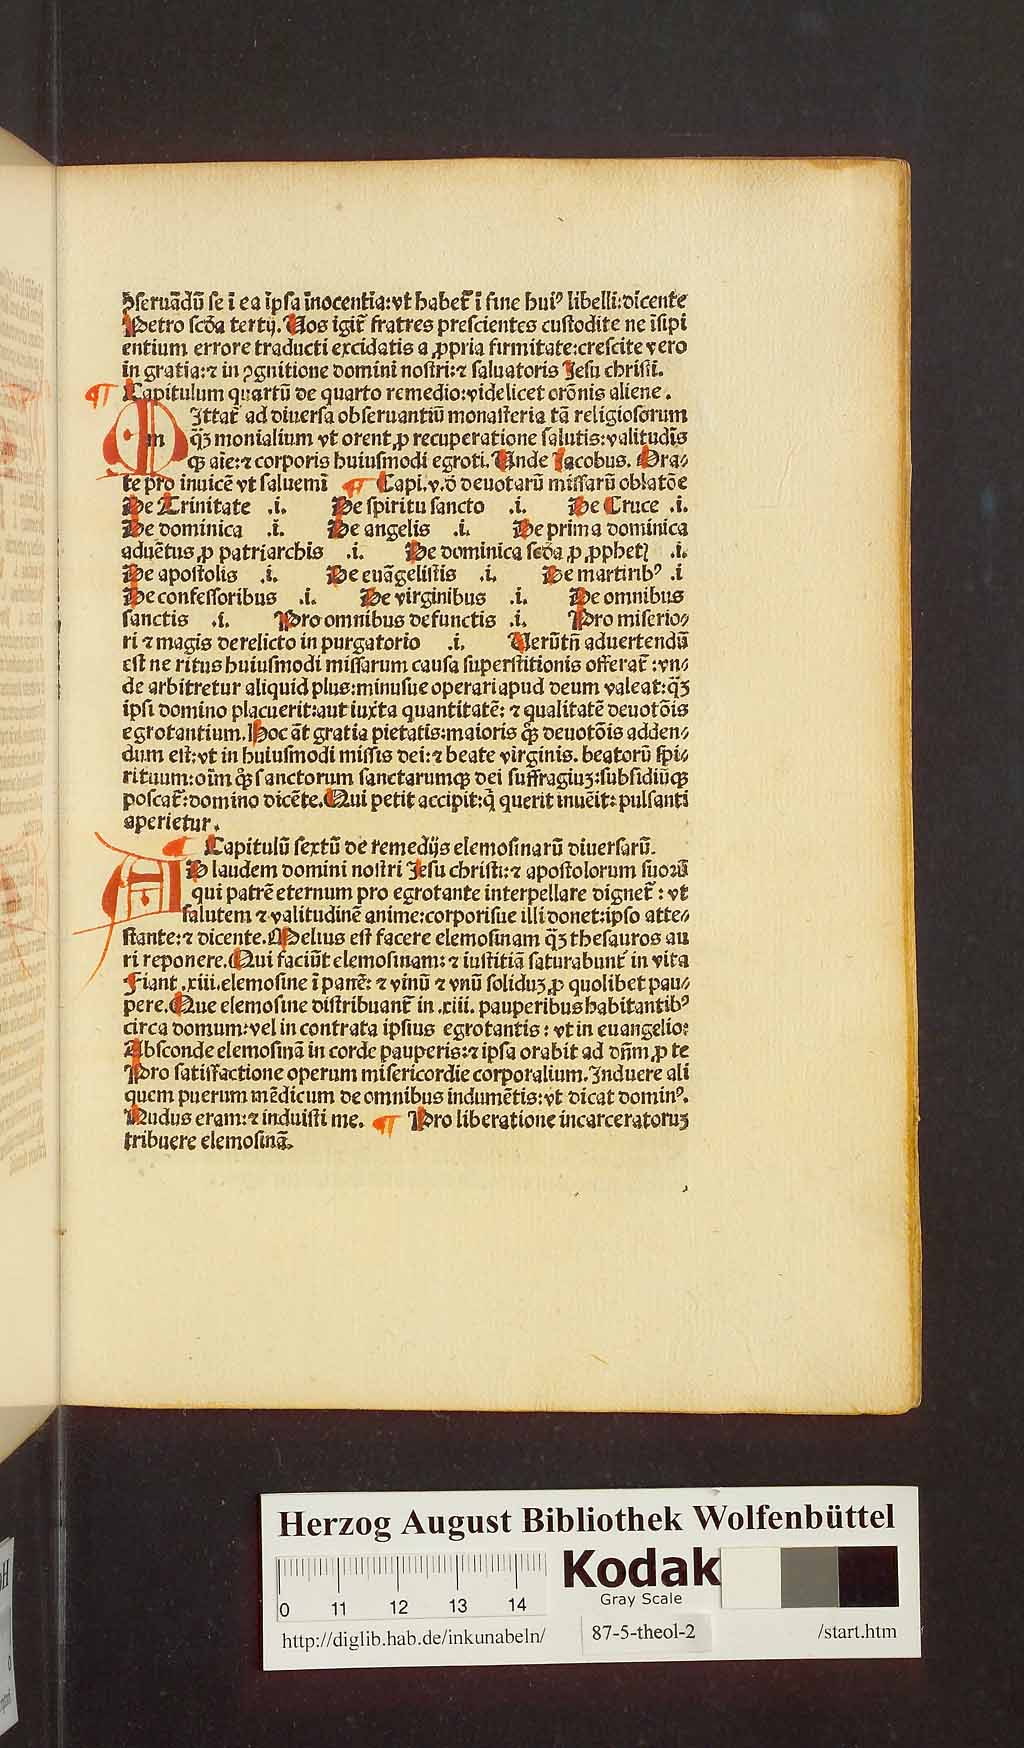 ↄseruādū se ī ea ipsa īnocentia: vt habet᷑ ī fine huiꝰ libelli: dicente
Petro scḋa tertij. Vos igit᷑ fratres prescientes custodite ne īsipi
entium errore traducti excidatis a ꝓpria firmitate: crescite vero
in gratia: ⁊ in ↄgnitione domini nostri: ⁊ saluatoris Jesu christi.
¶ Capitulum quartū de quarto remedio: videlicet orōnis aliene.
MIttat᷑ ad diuersa obseruantiū monasteria tā religiosorum
m
qꝫ̄ monialium vt orent ꝓ recuperatione salutis: valitudīs
qꝫ aīe: ⁊ corporis huiusmodi egroti. Unde Jacobus. Ora⸗
te pro inuicē vt saluemī ¶ Capi. v. ō deuotarū missarū oblatōe
De Trinitate .i. De spiritu sancto .i. De Cruce .i.
De dominica .i. De angelis .i. De prima dominica
aduētus ꝓ patriarchis .i. De dominica scḋa ꝓ ꝓphetꝭ .i.
De apostolis .i. De euāgelistis .i. De martiribꝰ .i
De confessoribus .i. De virginibus .i. De omnibus
sanctis .i. Pro omnibus defunctis .i. Pro miserio⸗
ri ⁊ magis derelicto in purgatorio .i. Uerūtn̄ aduertendū
est ne ritus huiusmodi missarum causa superstitionis offerat᷑: vn⸗
de arbitretur aliquid plus: minusue operari apud deum valeat: qꝫ̄
ipsi domino placuerit: aut iuxta quantitatē: ⁊ qualitatē deuotōis
egrotantium. Hoc āt gratia pietatis: maioris qꝫ deuotōis adden⸗
dum est: vt in huiusmodi missis dei: ⁊ beate virginis. beatorū spi⸗
rituum: oīm qꝫ sanctorum sanctarumqꝫ dei suffragiuꝫ: subsidiūqꝫ
poscat᷑: domino dicēte. Qui petit accipit: q̄ querit inuēit: pulsanti
aperietur.
¶ Capitulū sextū de remedijs elemosinarū diuersarū.
AD laudem domini nostri Jesu christi: ⁊ apostolorum suorū
qui patrē eternum pro egrotante interpellare dignet᷑: vt
salutem ⁊ valitudinē anime: corporisue illi donet: ipso atte⸗
stante: ⁊ dicente. Melius est facere elemosinam qꝫ̄ thesauros au
ri reponere. Qui faciūt elemosinam: ⁊ iustitiā saturabunt᷑ in vita
Fiant .xiii. elemosine ī pane: ⁊ vinū ⁊ vnū soliduꝫ ꝓ quolibet pau⸗
pere. Que elemosine distribuant᷑ in .xiii. pauperibus habitantibꝰ
circa domum: vel in contrata ipsius egrotantis: vt in euangelio:
Absconde elemosinā in corde pauperis: ⁊ ipsa orabit ad dn̄m ꝓ te
Pro satisfactione operum misericordie corporalium. Induere ali
quem puerum mēdicum de omnibus indumētis: vt dicat dominꝰ.
Nudus eram: ⁊ induisti me. ¶ Pro liberatione incarceratoruꝫ
tribuere elemosinā.
Herzog August Bibliothek Wolfenbüttel
0 11 12 13 14
Kodak
Gray Scale
http://diglib.hab.de/inkunabeln/ 87-5-theol-2 /start.htm